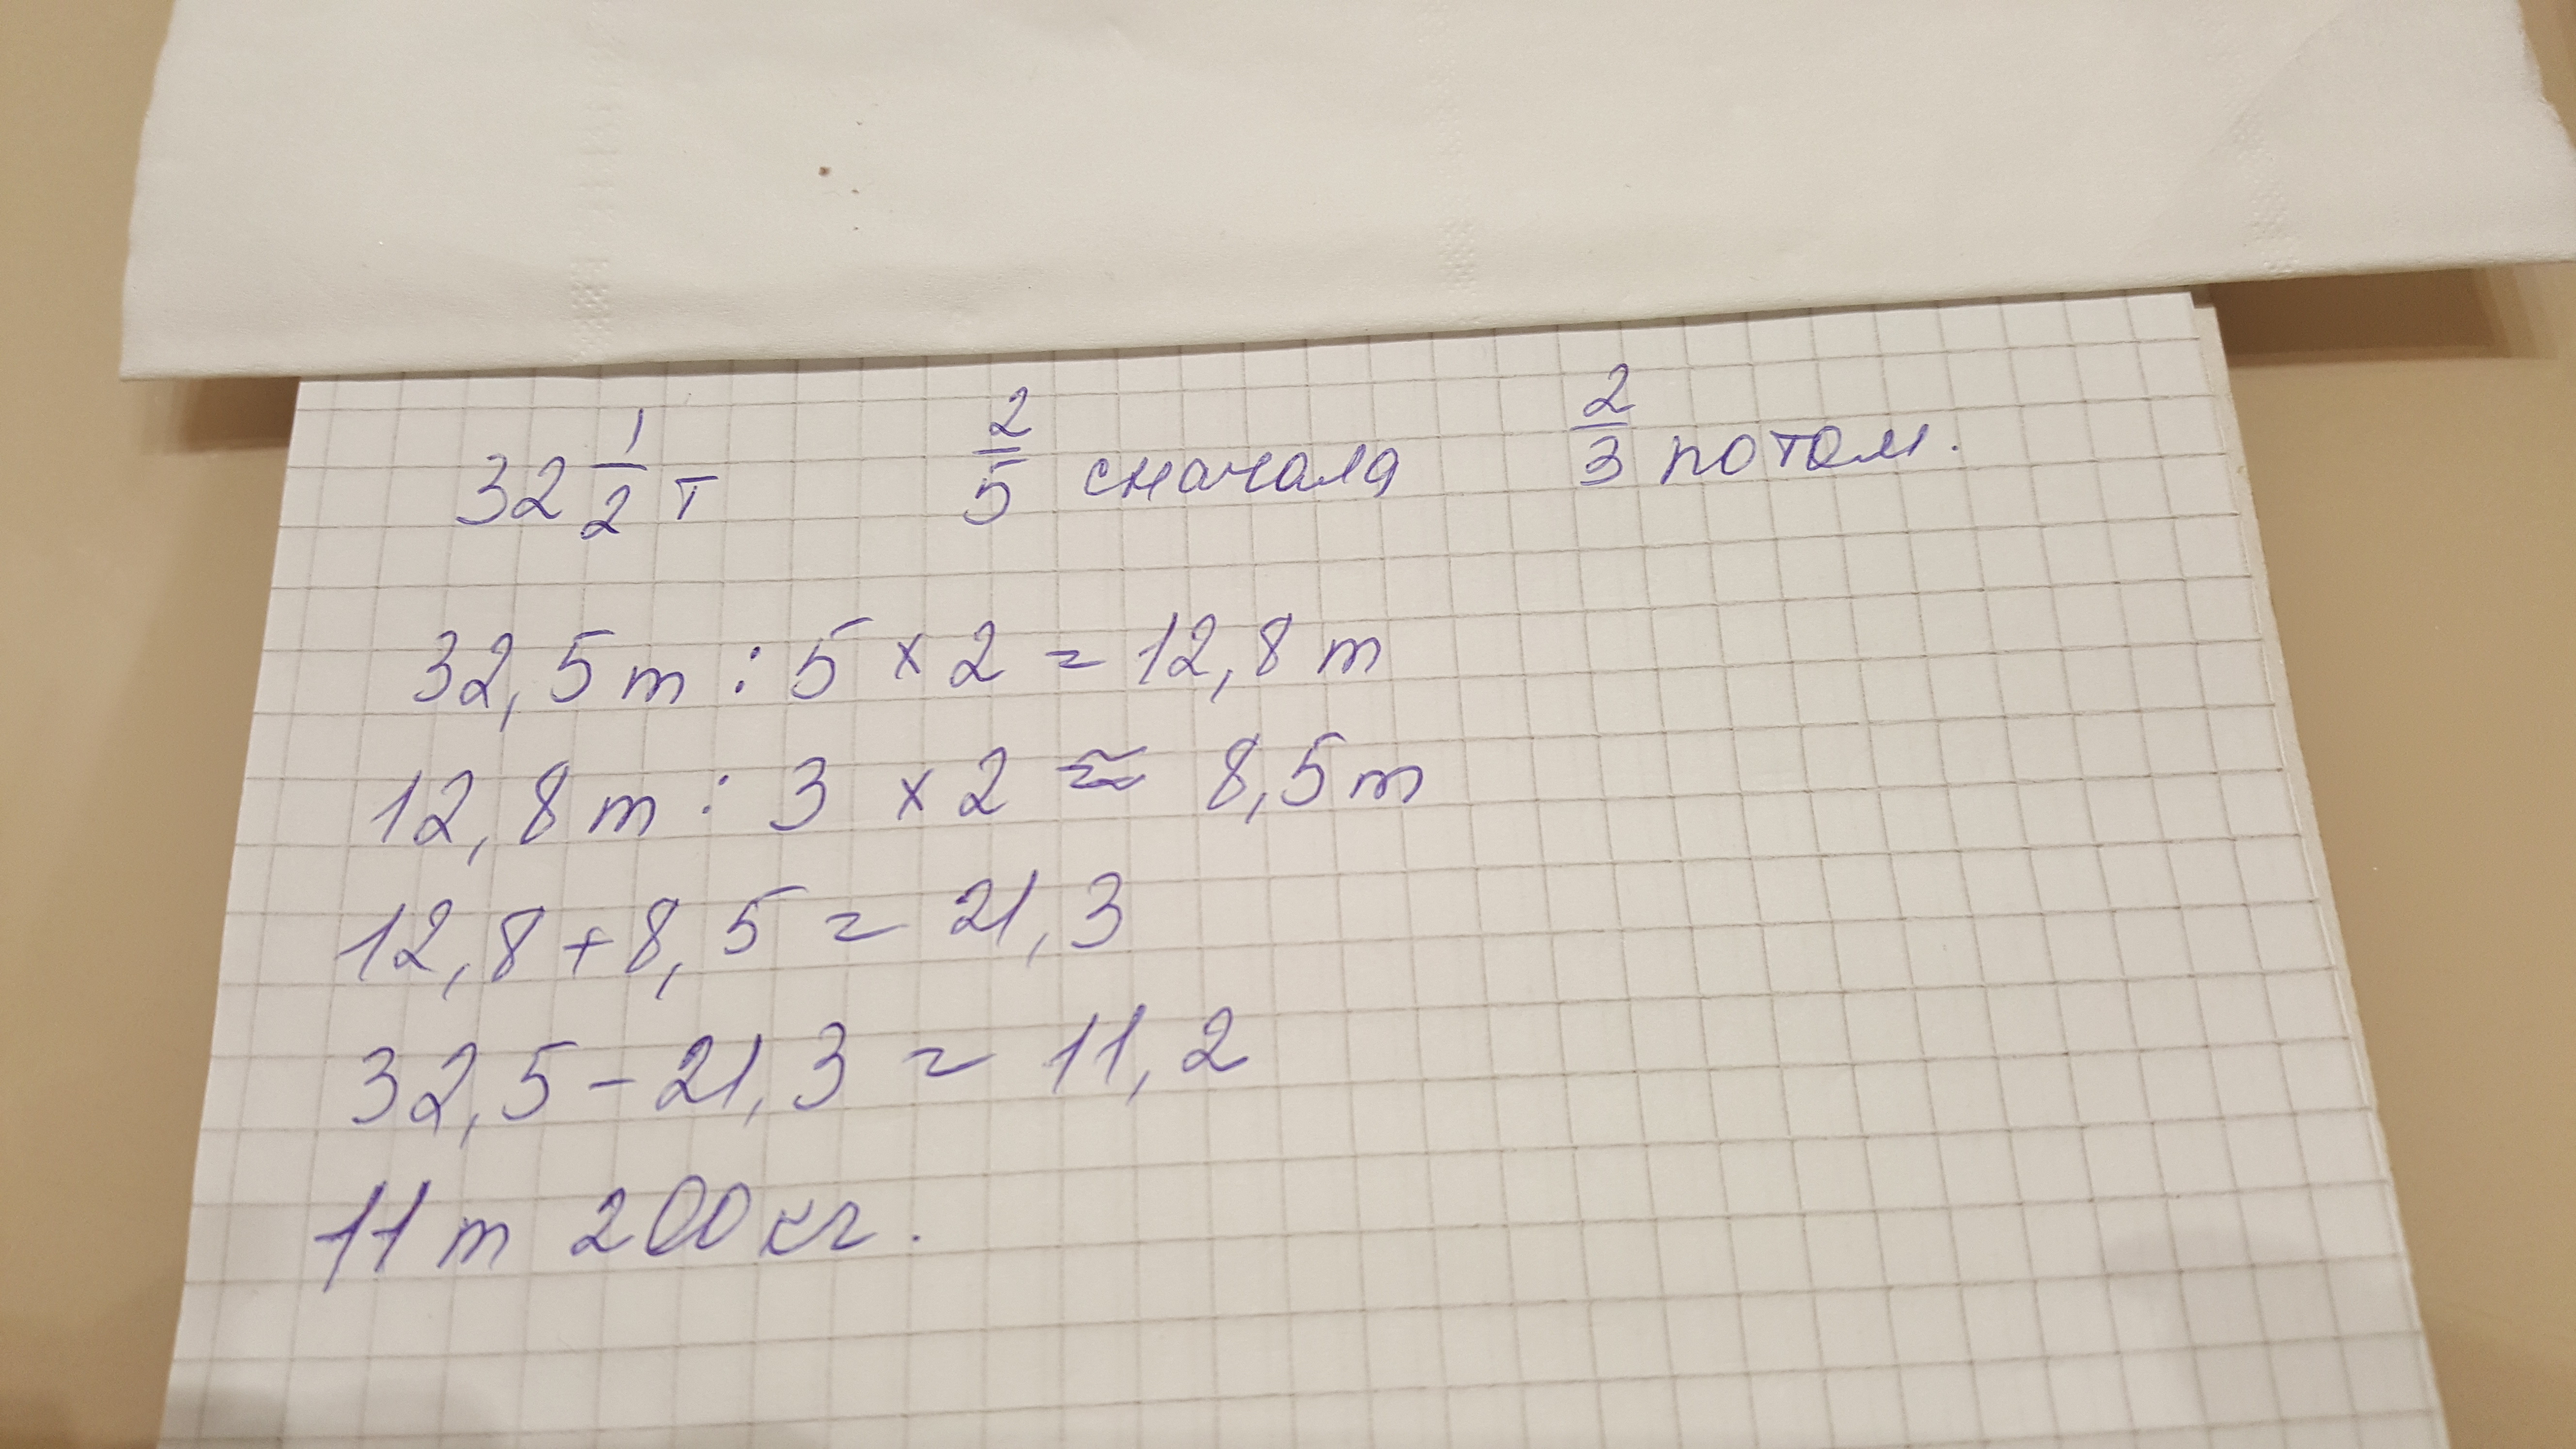 32 1/2 т 2/5 сначала 2/3 потом.
32,5т : 5 × 2 = 12,8 т
12,8 т : 3 × 2 ≈ 8,5 т
12,8 + 8,5 = 21,3
32,5 - 21,3 = 11,2
11 т 200 кг.